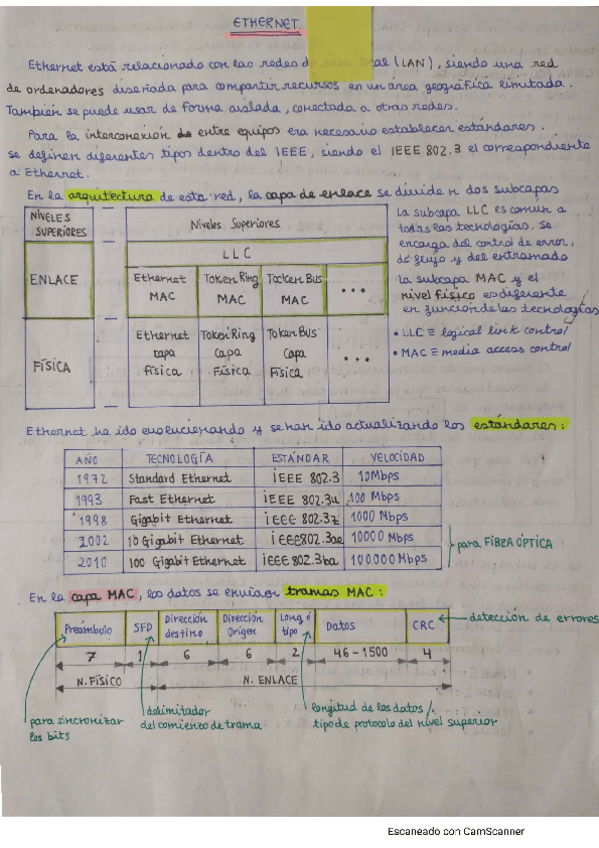 ETHERNET
Ethernet está relacionado con las redes d al (LAN), siendo una red
de ordenadores diseñada para compartir recursos en un área geográfica limitada.
También se puede usar de forma aislada, conectada a otras redes.
Para la interconexión de entre equipos era necesario establecer estándares.
se definen diferentes tipos dentro del IEEE, siendo el IEEE 802.3 el correspondiente
a Ethernet.
En la arquitectura de esta red, la capa de enlace se divide n dos subcapas
NIVELES SUPERIORES
Niveles Superiores
ENLACE
LLC
Ethernet MAC
Token Ring MAC
Tocken Bus MAC
...
FÍSICA
Ethernet capa física
Token Ring Capa Física
Token Bus Capa Física
...
La subcapa LLC es común a
todas las tecnologías. Se
encarga del control de error,
de flujo y del entramado
La subcapa MAC y el
nivel físico es diferente
en función de las tecnologías
• LLC ≡ logical link control
• MAC ≡ media access control
Ethernet ha ido evolucionando y se han ido actualizando los estándares:
AÑO TECNOLOGÍA ESTÁNDAR VELOCIDAD
1972 Standard Ethernet IEEE 802.3 10Mbps
1993 Fast Ethernet IEEE 802.3u 100 Mbps
1998 Gigabit Ethernet IEEE 802.3z 1000 Mbps
2002 10 Gigabit Ethernet IEEE802.3ae 10000 Mbps
2010 100 Gigabit Ethernet IEEE 802.3ba 100000Mbps
para FIBRA ÓPTICA
En la capa MAC, los datos se envían tramas MAC:
Preámbulo SFD Dirección destino Dirección Origen Long ó tipo Datos CRC
detección de errores
7 1 6 6 2 46-1500 4
N. FÍSICO N. ENLACE
para sincronizar
los bits
delimitador
del comienzo de trama
longitud de los datos/
tipo de protocolo del nivel superior
Escaneado con CamScanner